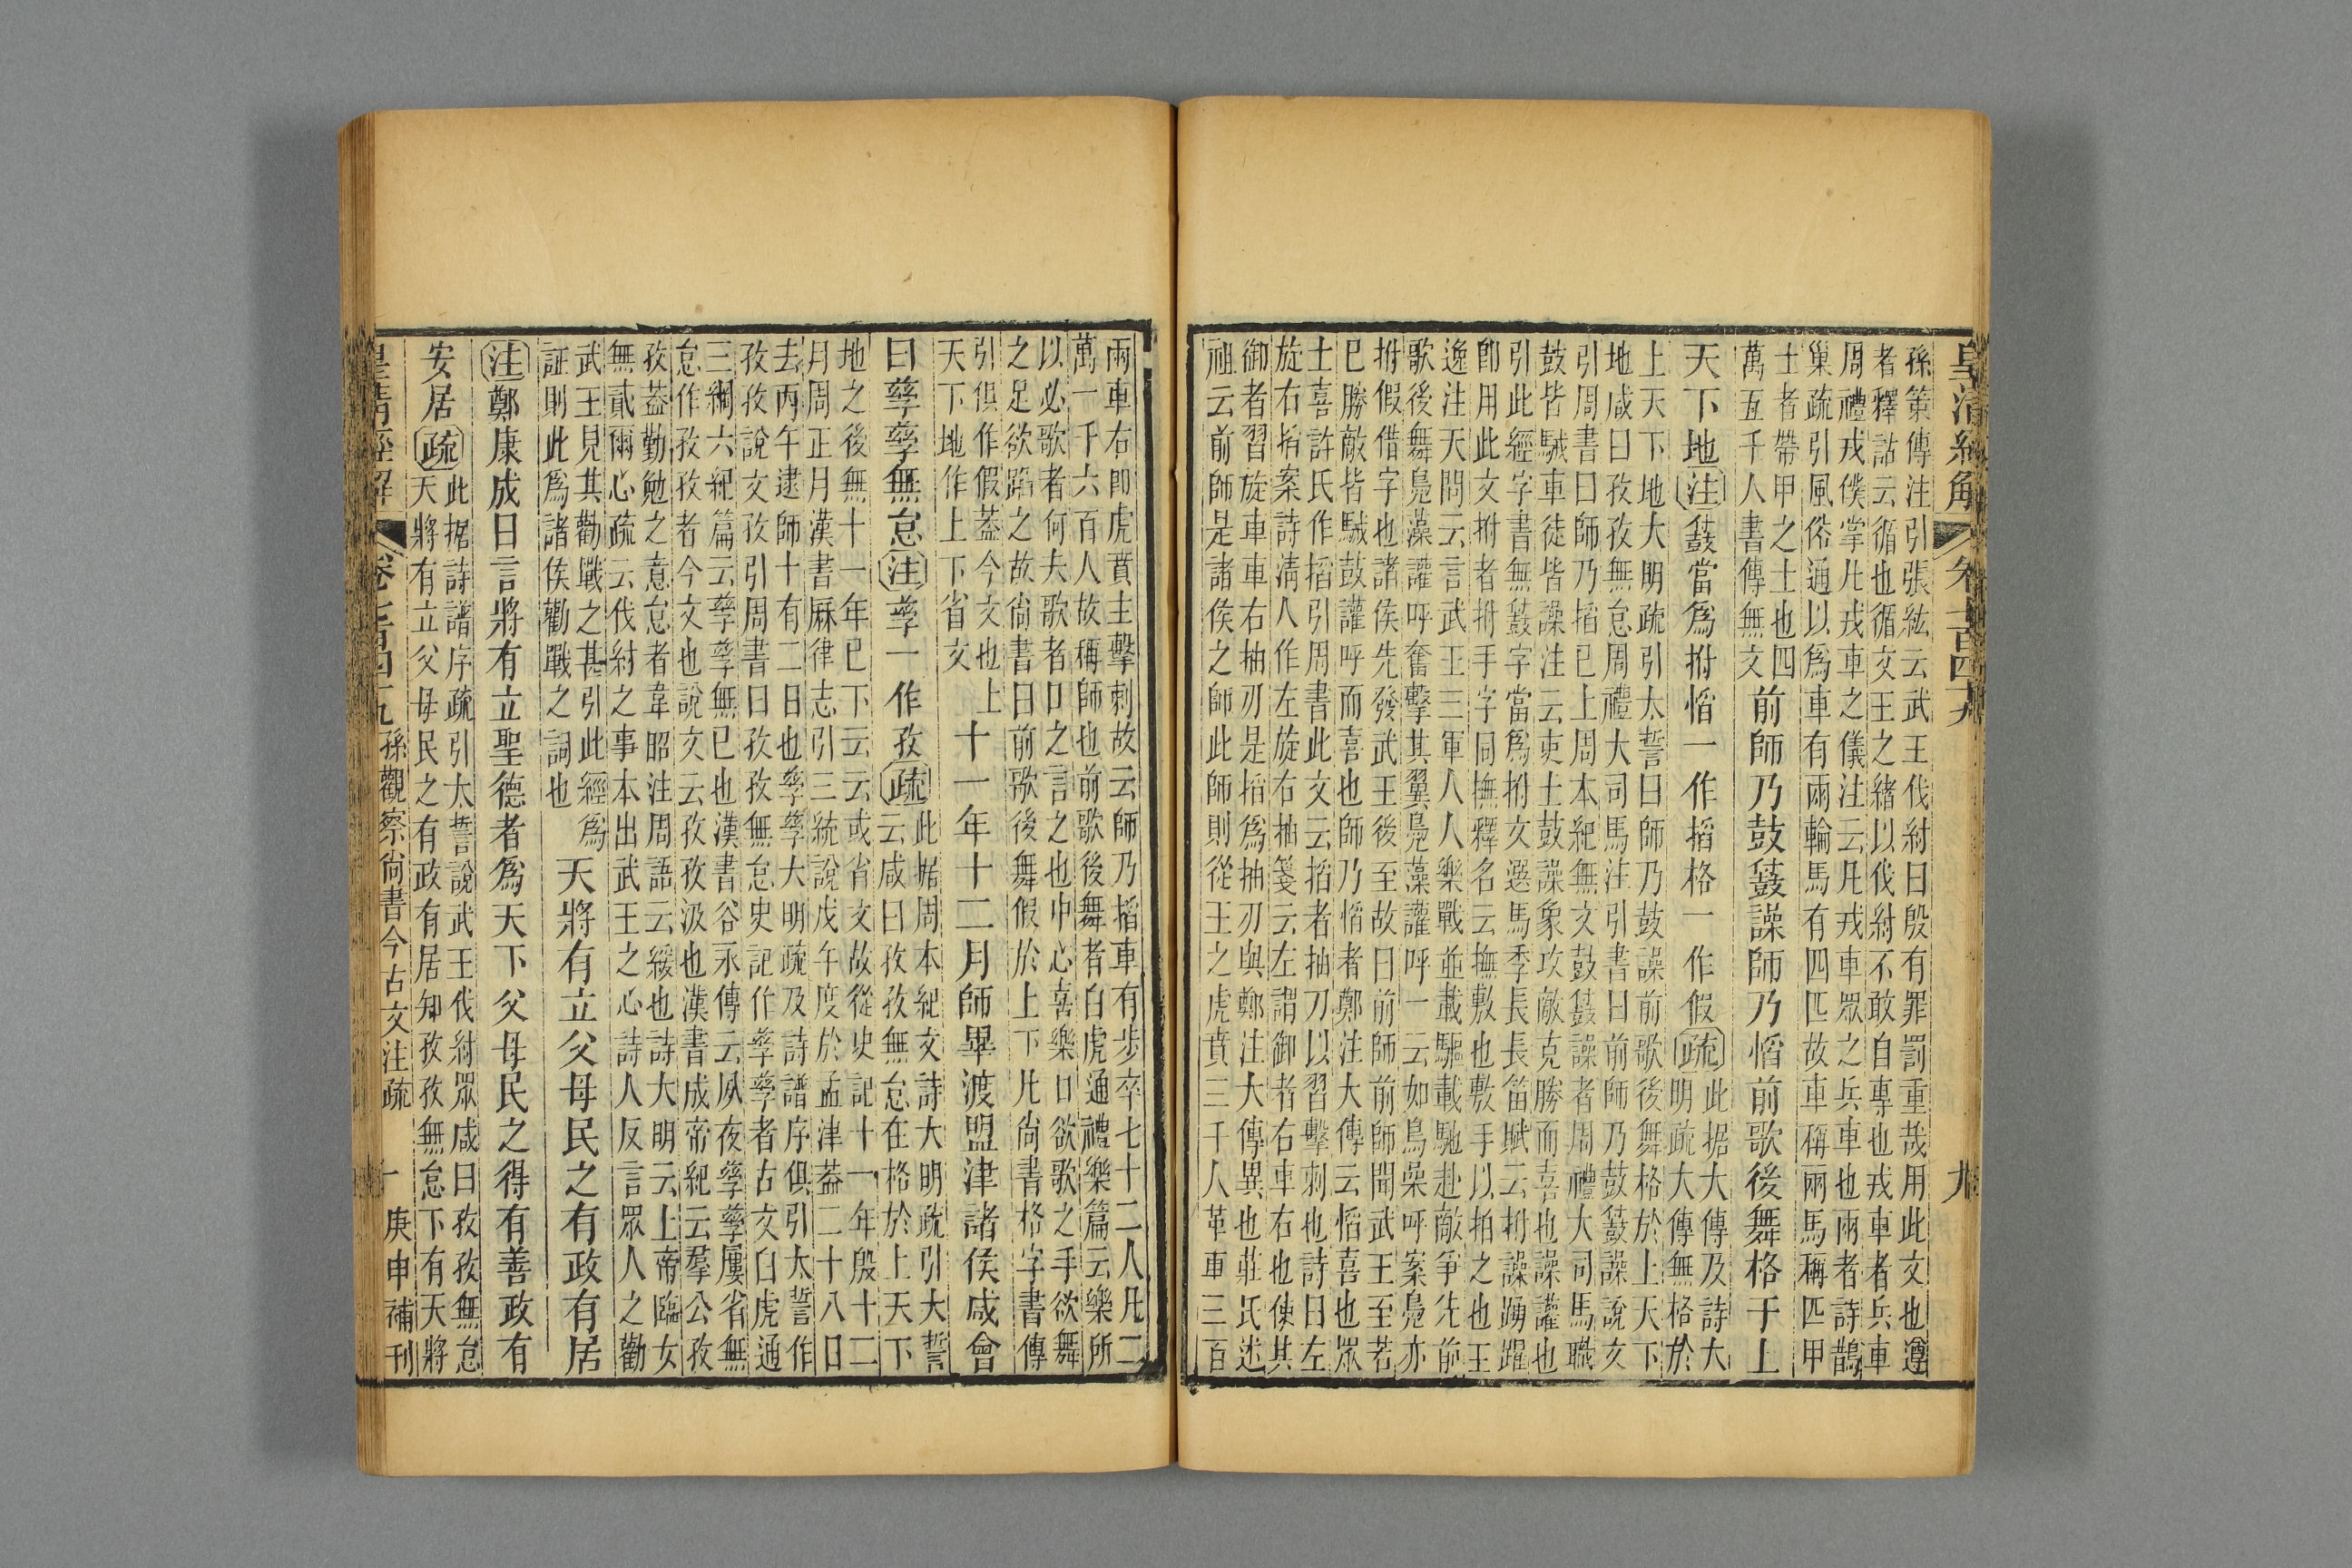 皇清經解
卷七百四十九
九
孫策傳注引張紘云武王伐紂曰殷有罪罰重哉用此文也遵
者釋詁云循也循文王之緒以伐紂不敢自專也戎車者兵車
周禮戎僕掌凡戎車之儀注云凡戎車眾之兵車也兩者詩鵲
巢疏引風俗通以爲車有兩輪馬有四匹故車稱兩馬稱匹甲
士者帶甲之士也四
萬五千人書傳無文
前師乃鼓鼖譟師乃慆前歌後舞格于上
天下地注鼖當爲拊慆一作搯格一作假疏
此据大傳及詩大
明疏大傳無格於
上天下地大明疏引太誓曰師乃鼓譟前歌後舞格於上天下
地咸曰孜孜無怠周禮大司馬注引書曰前師乃鼓鼖譟說文
引周書曰師乃搯已上周本紀無文鼓鼖譟者周禮大司馬職
鼓皆駴車徒皆譟注云吏士鼓譟象攻敵克勝而喜也譟讙也
引此經字書無鼖字當爲拊文選馬季長長笛賦云拊譟踴躍
卽用此文拊者拊手字同撫釋名云撫敷也敷手以拍之也王
逸注天問云言武王三軍人人樂戰並載驅載馳赴敵爭先前
歌後舞鳧藻讙呼奮擊其翼鳧藻讙呼一云如鳥噪呼案鳧亦
拊假借字也諸侯先發武王後至故曰前師前師聞武王至若
已勝敵皆駴鼓讙呼而喜也師乃慆者鄭注大傳云慆喜也眾
士喜許氏作搯引周書此文云搯者抽刀以習擊刺也詩曰左
旋右搯案詩淸人作左旋右抽箋云左謂御者右車右也使其
御者習旋車車右抽刃是搯爲抽刃與鄭注大傳異也莊氏述
祖云前師是諸侯之師此師則從王之虎賁三千人革車三百
兩車右卽虎賁主擊刺故云師乃搯車有步卒七十二人凡二
萬一千六百人故稱師也前歌後舞者白虎通禮樂篇云樂所
以必歌者何夫歌者口之言之也中心喜樂口欲歌之手欲舞
之足欲蹈之故尙書曰前歌後舞假於上下凡尙書格字書傳
引俱作假蓋今文也上
天下地作上下省文
十一年十二月師畢渡盟津諸侯咸會
曰孳孳無怠注孳一作孜疏
此据周本紀文詩大明疏引大誓
云咸曰孜孜無怠在格於上天下
地之後無十一年已下云云或省文故從史記十一年殷十二
月周正月漢書厤律志引三統說戊午度於孟津蓋二十八日
去丙午逮師十有二日也孳孳大明疏及詩譜序俱引太誓作
孜孜說文孜引周書曰孜孜無怠史記作孳孳者古文白虎通
三綱六紀篇云孳孳無已也漢書谷永傳云夙夜孳孳屢省無
怠作孜孜者今文也說文云孜孜汲也漢書成帝紀云羣公孜
孜蓋勤勉之意怠者韋昭注周語云緩也詩大明云上帝臨女
無貳爾心疏云伐紂之事本出武王之心詩人反言眾人之勸
武王見其勸戰之甚引此經爲
証則此爲諸侯勸戰之詞也
天將有立父母民之有政有居
注鄭康成曰言將有立聖德者爲天下父母民之得有善政有
安居疏
此据詩譜序疏引太誓說武王伐紂眾咸曰孜孜無怠
天將有立父母民之有政有居知孜孜無怠下有天將
皇清經解
卷七百四十九
孫觀察尙書今古文注疏
十
庚申補刊